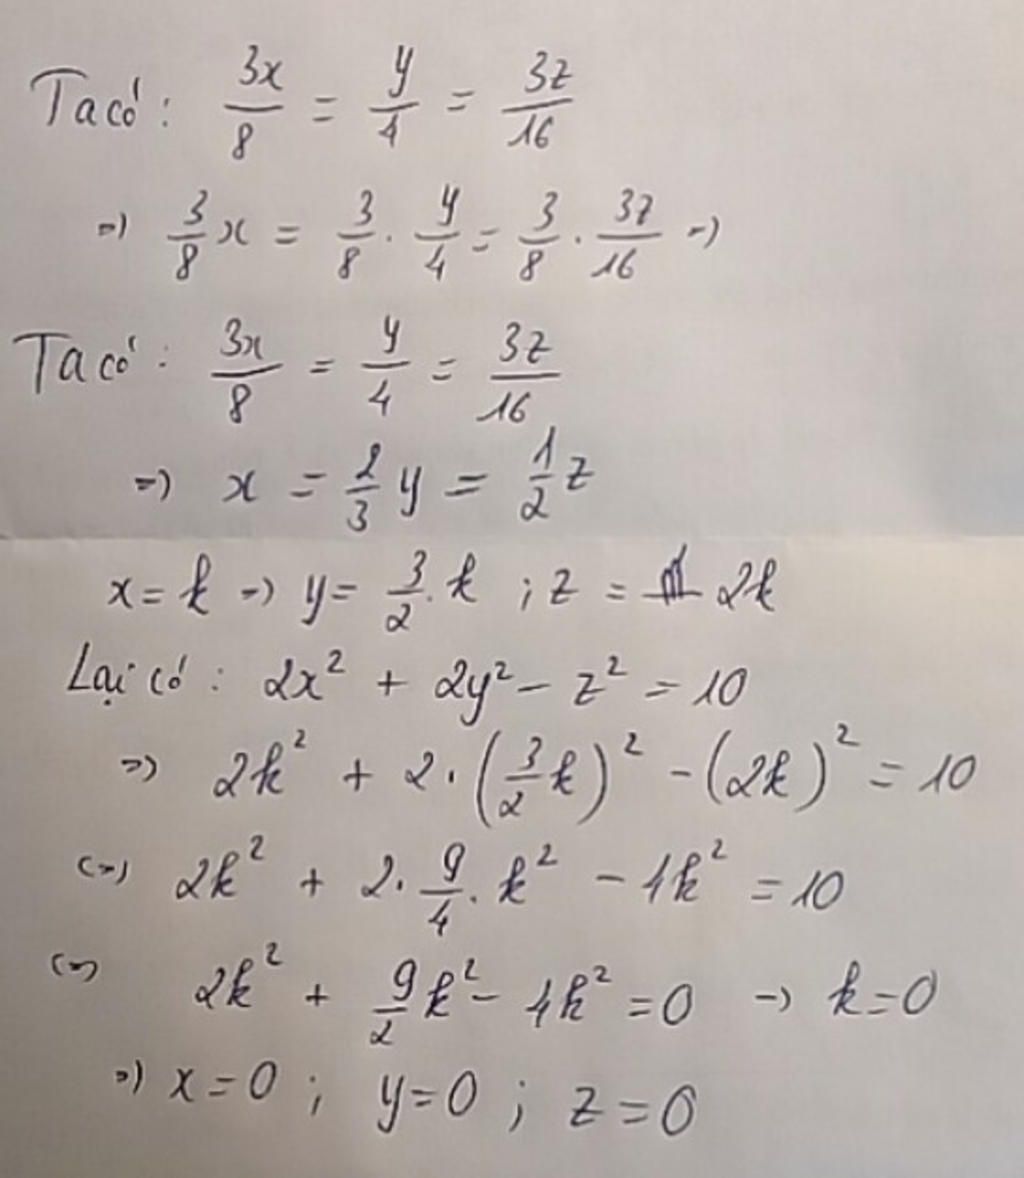 Ta có: 3x/8 = y/4 = 3z/16
=) 3/8 x = 3/8 . y/4 = 3/8 . 3z/16 =)
Ta có: 3x/8 = y/4 = 3z/16
=) x = 2/3 y = 1/2 z
x = k =) y = 3/2 . k ; z = 2k
Lại có: 2x² + 2y² - z² = 10
=) 2k² + 2 . (3/2 k)² - (2k)² = 10
(=) 2k² + 2 . 9/4 . k² - 4k² = 10
(=) 2k² + 9/2 k² - 4k² = 0 -) k = 0
=) x = 0 ; y = 0 ; z = 0